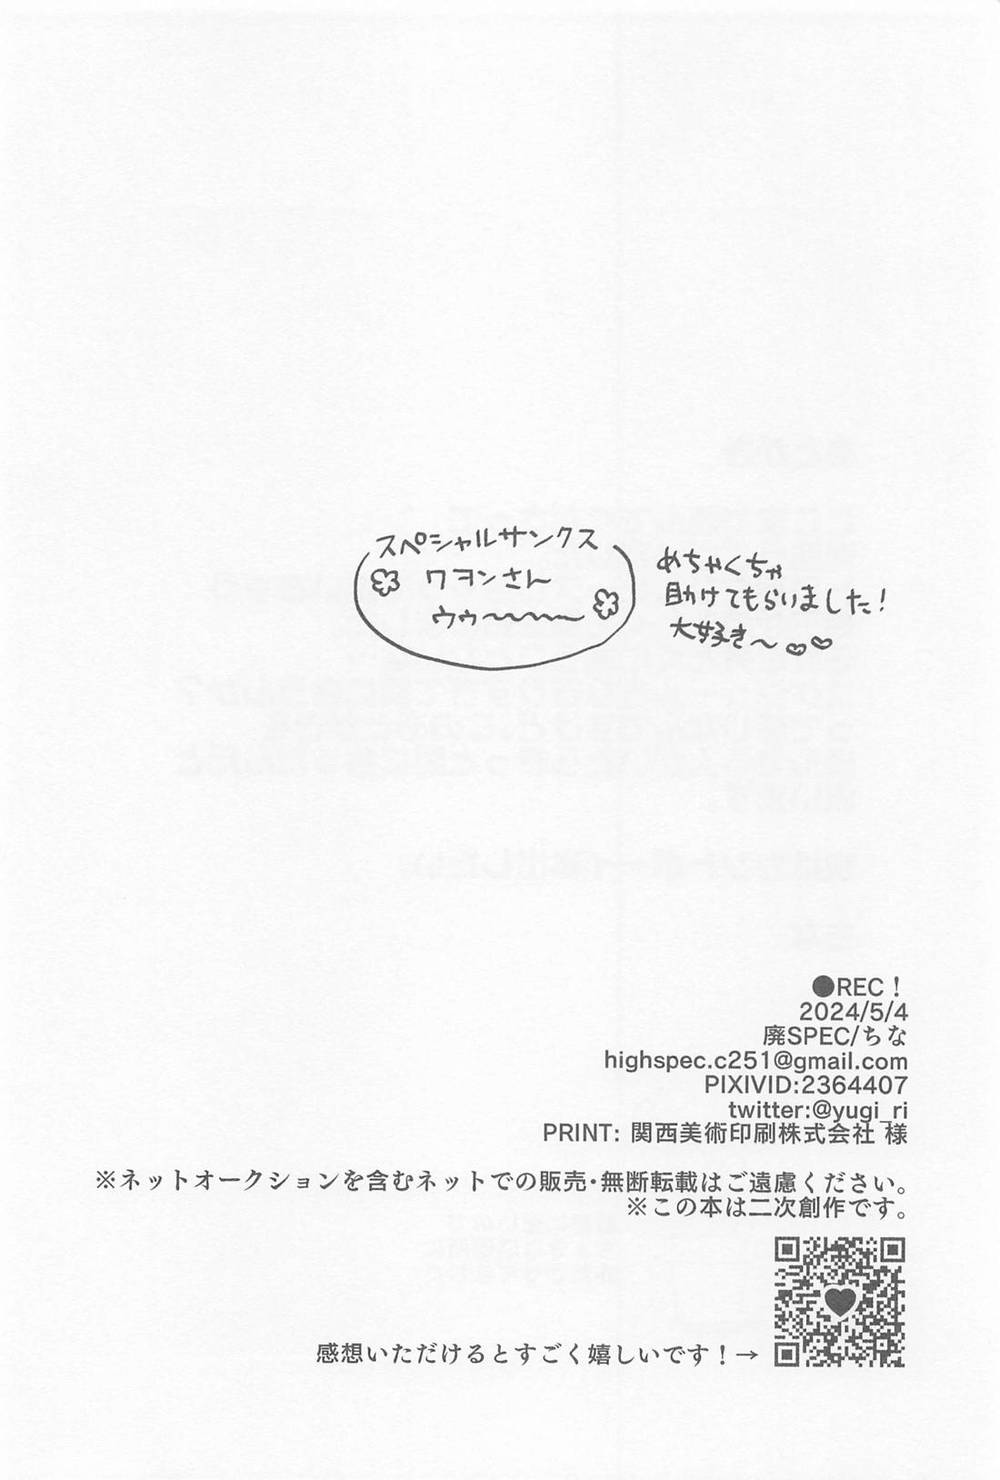 スペシャルサンクス
ワヨンさん
ウゥ〜〜〜〜
めちゃくちゃ
助けてもらいました！
大好き〜
●REC！
2024/5/4
廃SPEC/ちな
highspec.c251@gmail.com
PIXIVID:2364407
twitter:@yugi_ri
PRINT: 関西美術印刷株式会社 様
※ネットオークションを含むネットでの販売・無断転載はご遠慮ください。
※この本は二次創作です。
感想いただけるとすごく嬉しいです！→